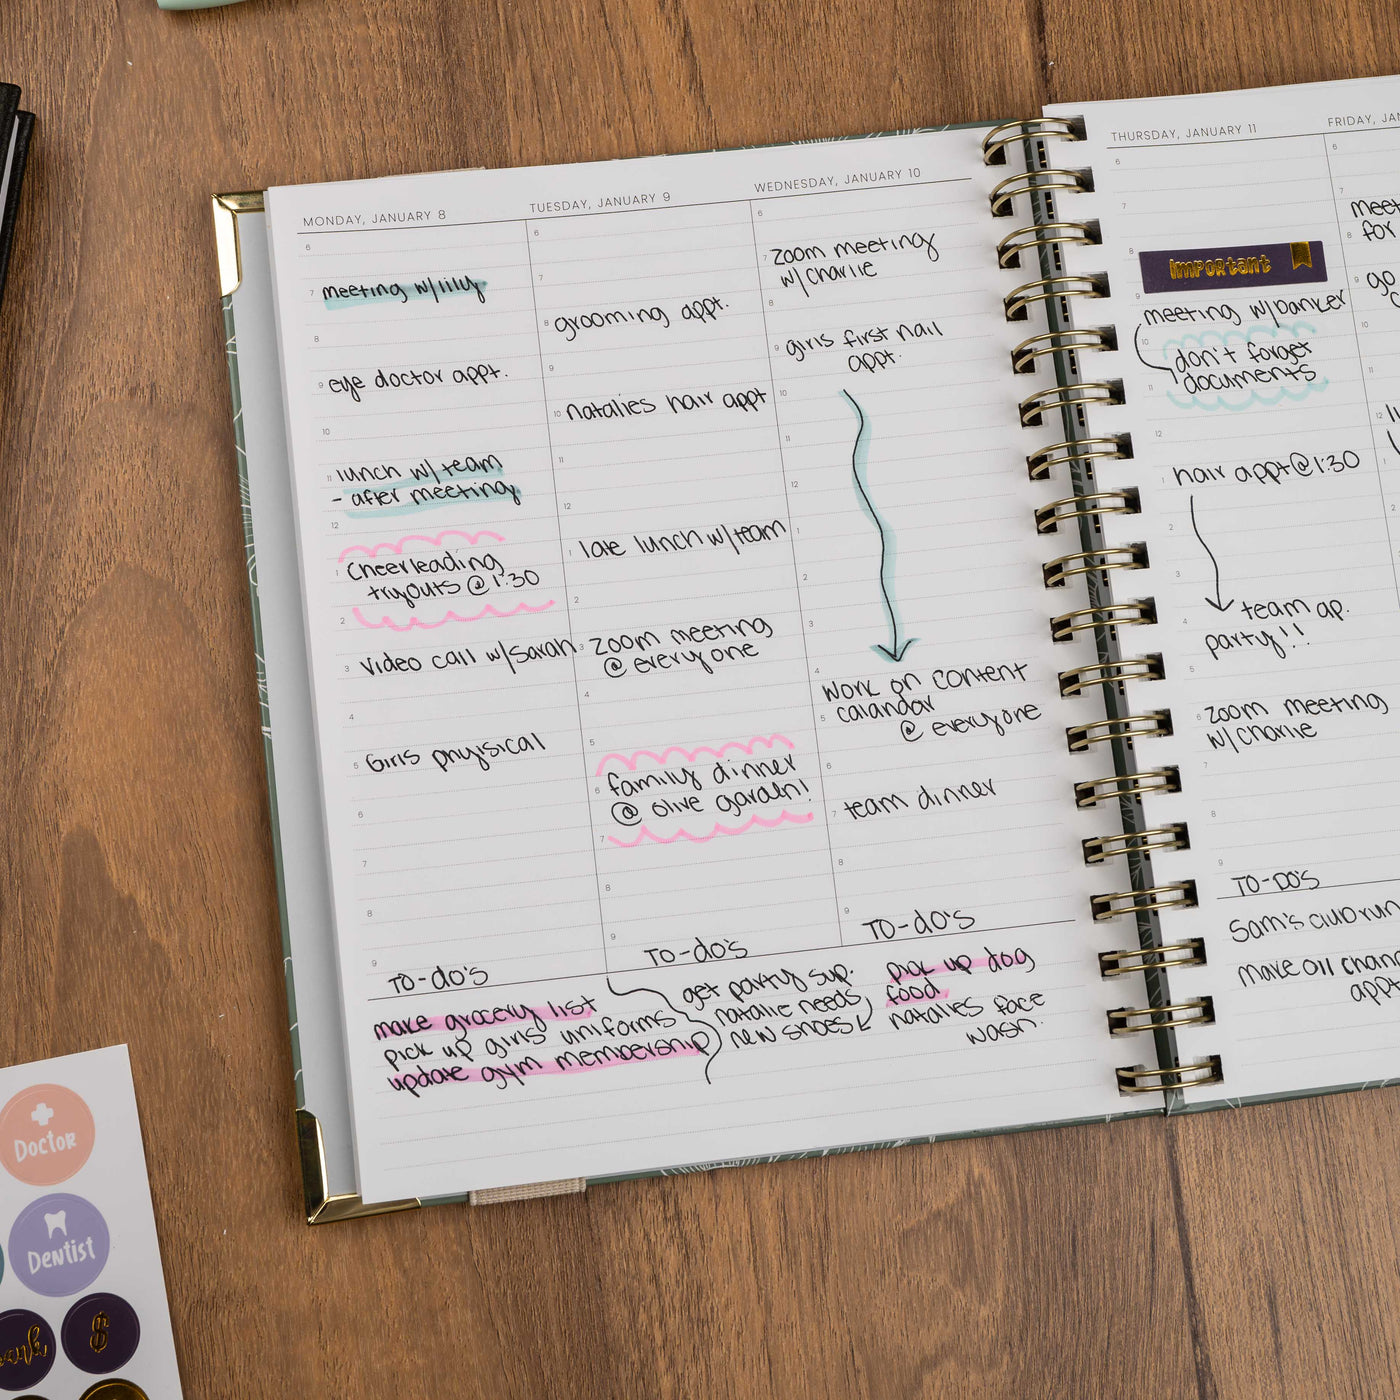 MONDAY, JANUARY 8
6
7 meeting w/lily
8
9 eye doctor appt.
10
11 lunch w/ team
- after meeting
12
1 Cheerleading
tryouts @ 1:30
2
3 video call w/Sarah
4
5 Girls phyisical
6
7
8
9
TO-do's
make grocery list
pick up girls uniforms
update gym membership
TUESDAY, JANUARY 9
6
7
8 grooming appt.
9
10 natalies hair appt
11
12
1 late lunch w/team
2
3 zoom meeting
@ everyone
4
5
6 family dinner
@ olive garden!
7
8
9
TO-do's
get party sup.
natalie needs
new shoes
WEDNESDAY, JANUARY 10
6
7 zoom meeting
w/ Charlie
8
9 girls first nail
appt.
10
11
12
1
2
3
4
work on content
5 calandar
@ everyone
6
7 team dinner
8
9
TO-do's
pick up dog
food
natalies face
wash.
THURSDAY, JANUARY 11
6
7
8
Important
9
meeting w/banker
10
don't forget
11 documents
12
1 hair appt @ 1:30
2
3
4 team ap.
party!!
5
6 zoom meeting
w/ Charlie
7
8
9
TO-DO'S
Sam's club run
make oil chan
appt
FRIDAY, JAN
6
7
meet
8 for
9 go
10
12
1
2
Doctor
Dentist
$